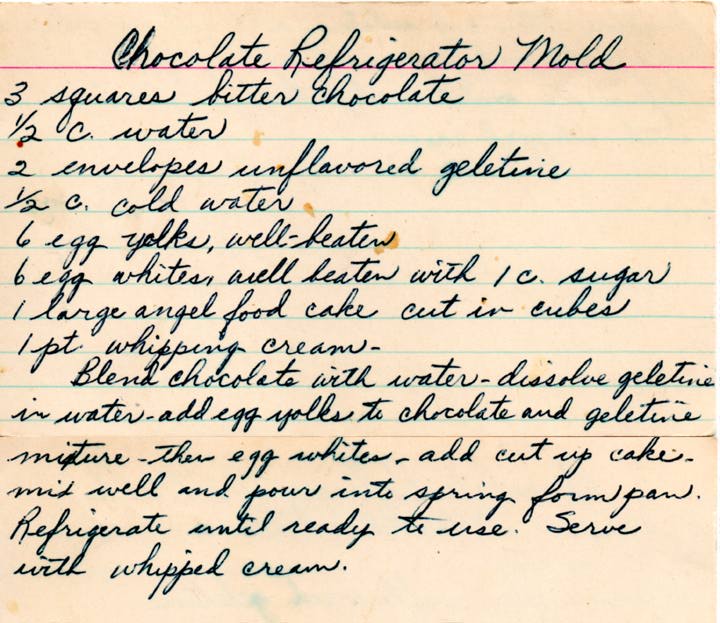 Chocolate Refrigerator Mold
3 squares bitter chocolate
1/2 c. water
2 envelopes unflavored geletine
1/2 c. cold water
6 egg yolks, well-beaten
6 egg whites, well beaten with 1 c. sugar
1 large angel food cake cut in cubes
1 pt. whipping cream-
Blend chocolate with water - dissolve geletine
in water - add egg yolks to chocolate and geletine
mixture - then egg whites - add cut up cake -
mix well and pour into spring form pan.
Refrigerate until ready to use. Serve
with whipped cream.